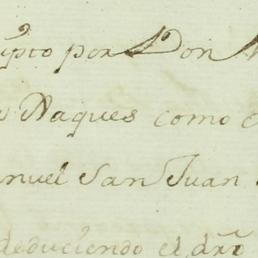 ipto por Don
Naques como
nuel San Juan
deduciendo el dr̃o